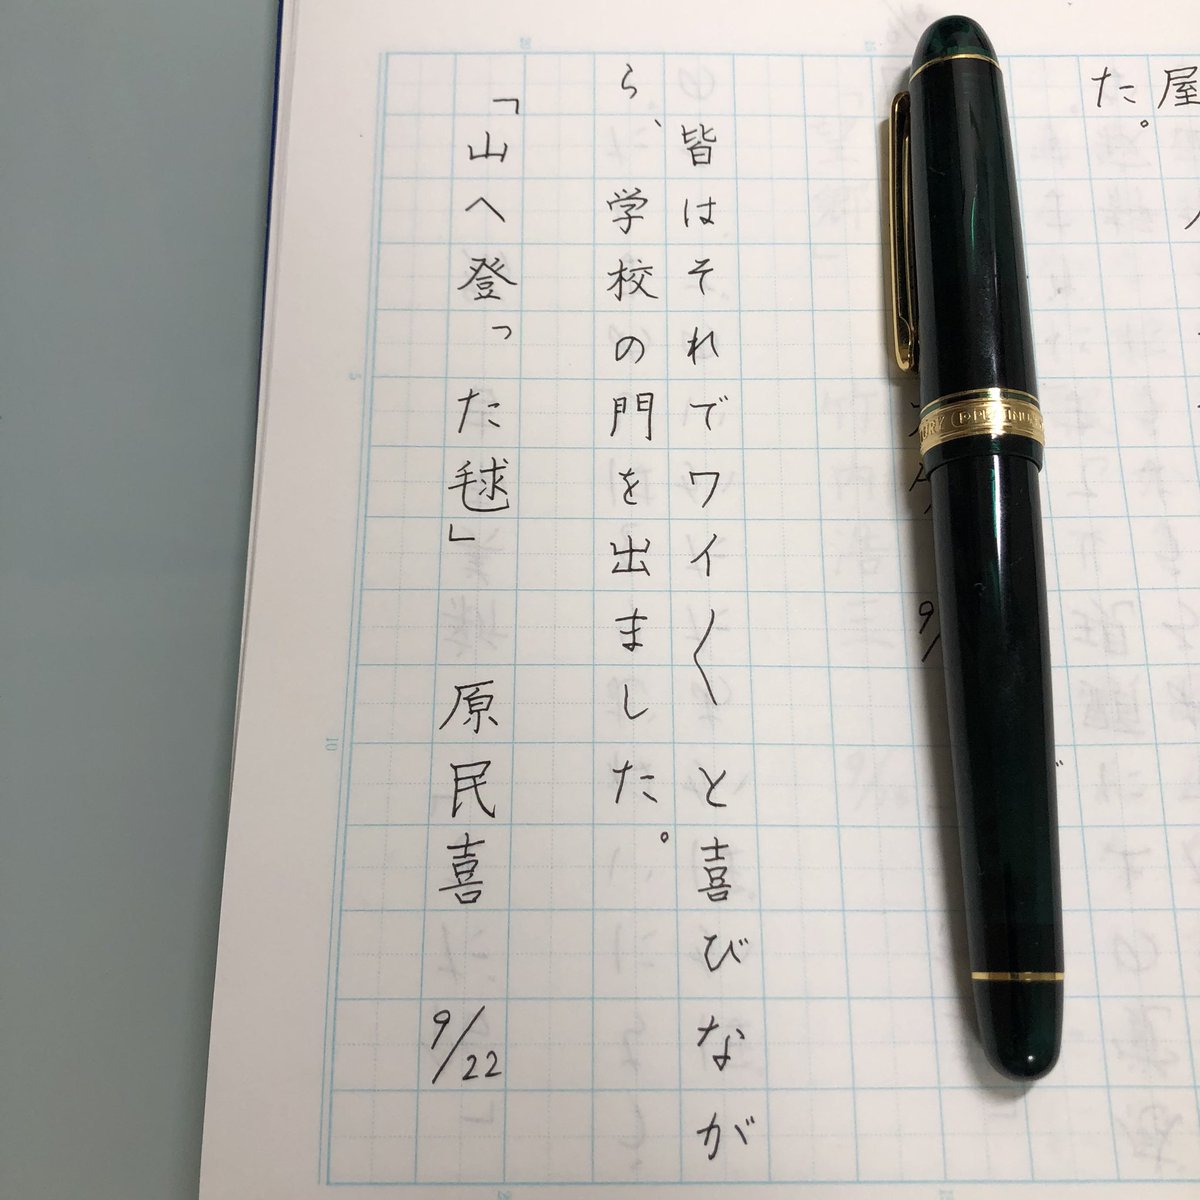 屋
た。
皆はそれでワイ〱と喜びなが
ら、学校の門を出ました。
「山へ登った毬」 原民喜 9/22
9/
PLATINUM
20
15
5
10